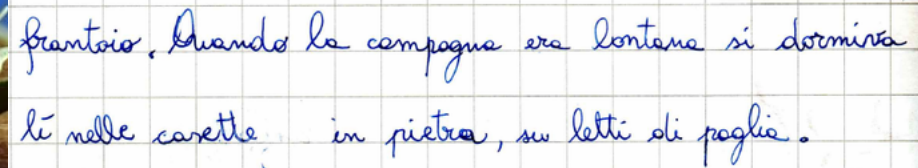 frantoio. Quando la campagna era lontana si dormiva
lì nelle casette in pietra, su letti di paglia.